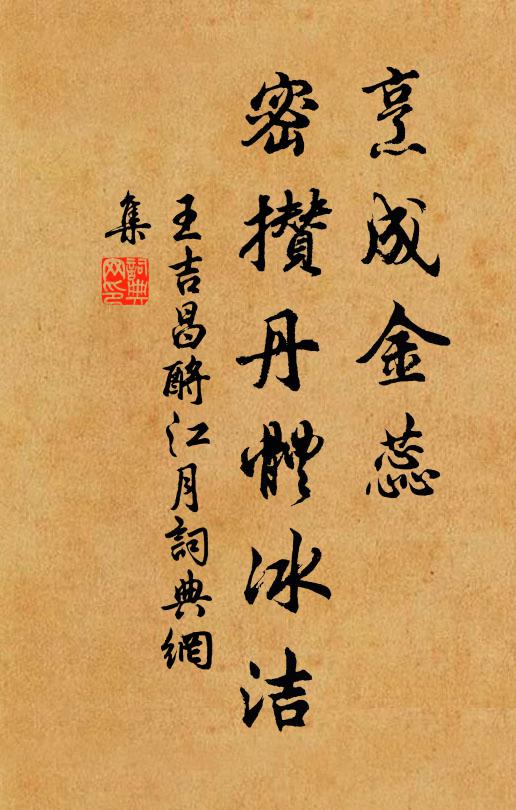 烹成金蕊
密攢丹體冰洁
王吉昌酹江月詞典網
集
詞典
网印